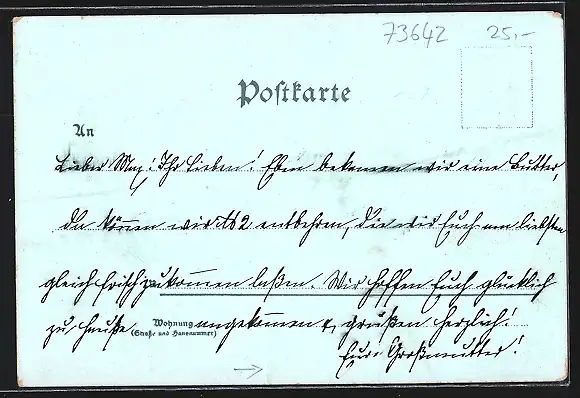 73642 25,-
Postkarte
An
Lieber Max! Ihr Lieben! Eben bekommen wir eine Butter,
da können wir 2 entbehren, die wir Euch am liebsten
gleich frisch zukommen laßen. Wir hoffen Euch glücklich
zu Hause angekommen u. grüßen herzlich!
Wohnung
(Straße und Hausnummer)
Eure Großmutter!